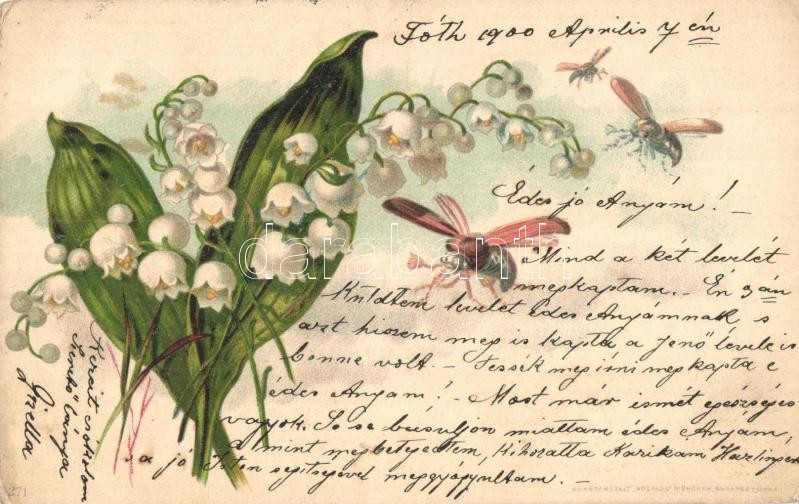 Tóth 1900 Április 7 én
Édes jó Anyám! –
Mind a két levelét
megkaptam. – Én 3 án
Küldtem levelet édes Anyámnak s
azt hiszem meg is kapta a Jenő levele is
benne volt. – Tessék meg irni megkapta e
édes Anyám! – Most már ismét egészséges
vagyok. So se búsuljon miattam édes Anyám,
a mint megbetegedtem, kihozatta Karikam
sa jó Isten segitsegével meggyógyultam. –
Kezeit csókolom
szerető lánya
Gizella
darabanth
271
KUNSTANSTALT "KOSMOS" MÜNCHEN, BUDAPEST